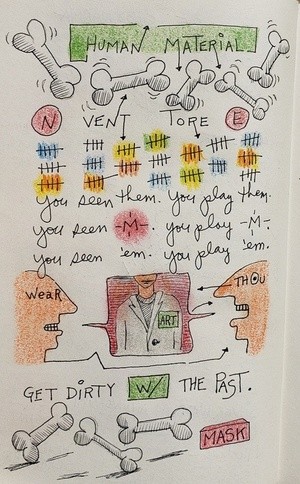 HUMAN MATERIAL
N VENT TORE E
You seen them. You play them.
you seen -M-. you play -M-.
you seen 'em. you play 'em.
WeaR THOU
ART
GET DIRTY W/ THE PAST.
MASK